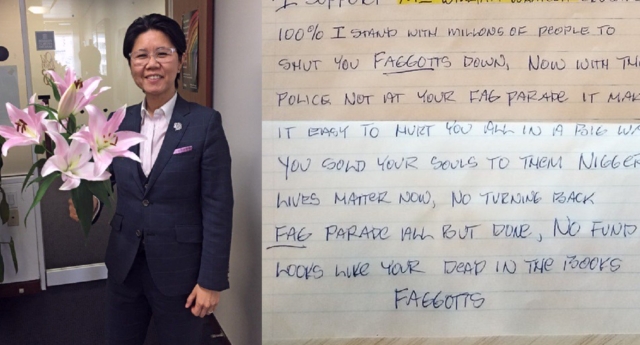 I SUPPORT
100% I STAND WITH MILLONS OF PEOPLE TO
SHUT YOU FAGGOTTS DOWN, NOW WITH TH
POLICE NOT AT YOUR FAG PARADE IT MAK
IT EASY TO HURT YOU ALL IN A BIG WA
YOU SOLD YOUR SOULS TO THEM NIGGER
LIVES MATTER NOW, NO TURNING BACK
FAG PARADE ALL BUT DONE, NO FUND
LOOKS LIKE YOUR DEAD IN THE BOOKS
FAGGOTTS